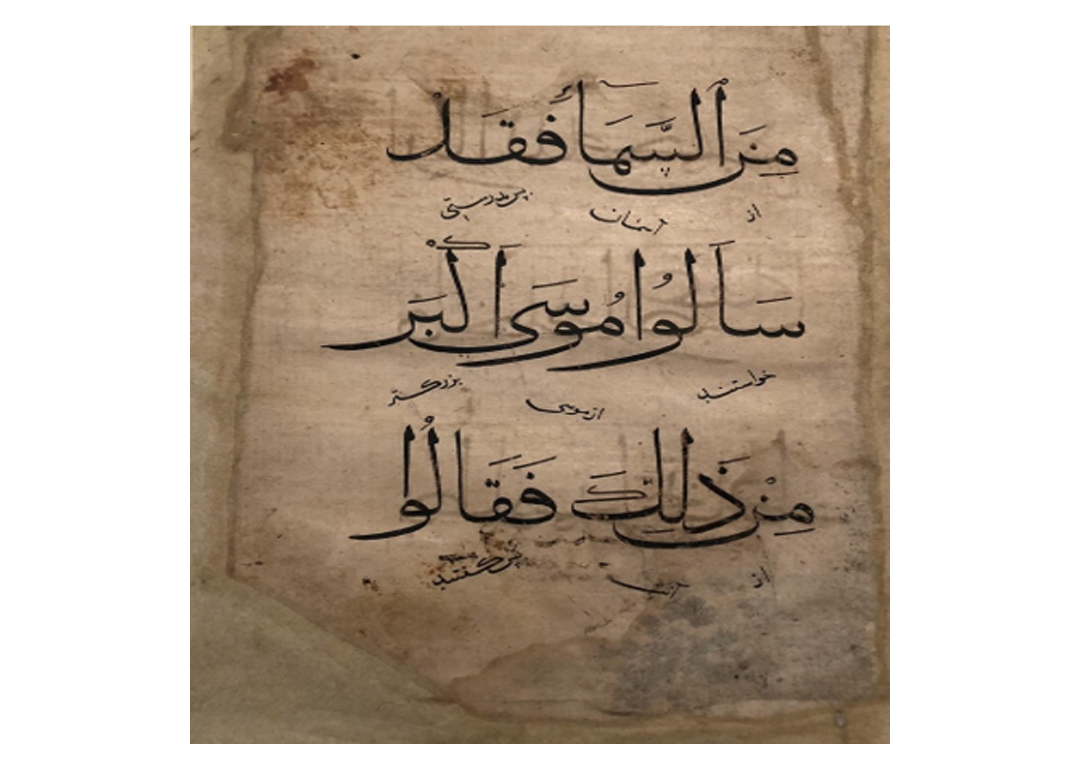 مِنَ ٱلسَّمَآءِ فَقَدْ
از آسمان پس بدرستی
سَأَلُوا مُوسَىٰ أَكْبَرَ
خواستند از موسی بزرگتر
مِنْ ذَلِكَ فَقَالُوا
از آن پس گفتند